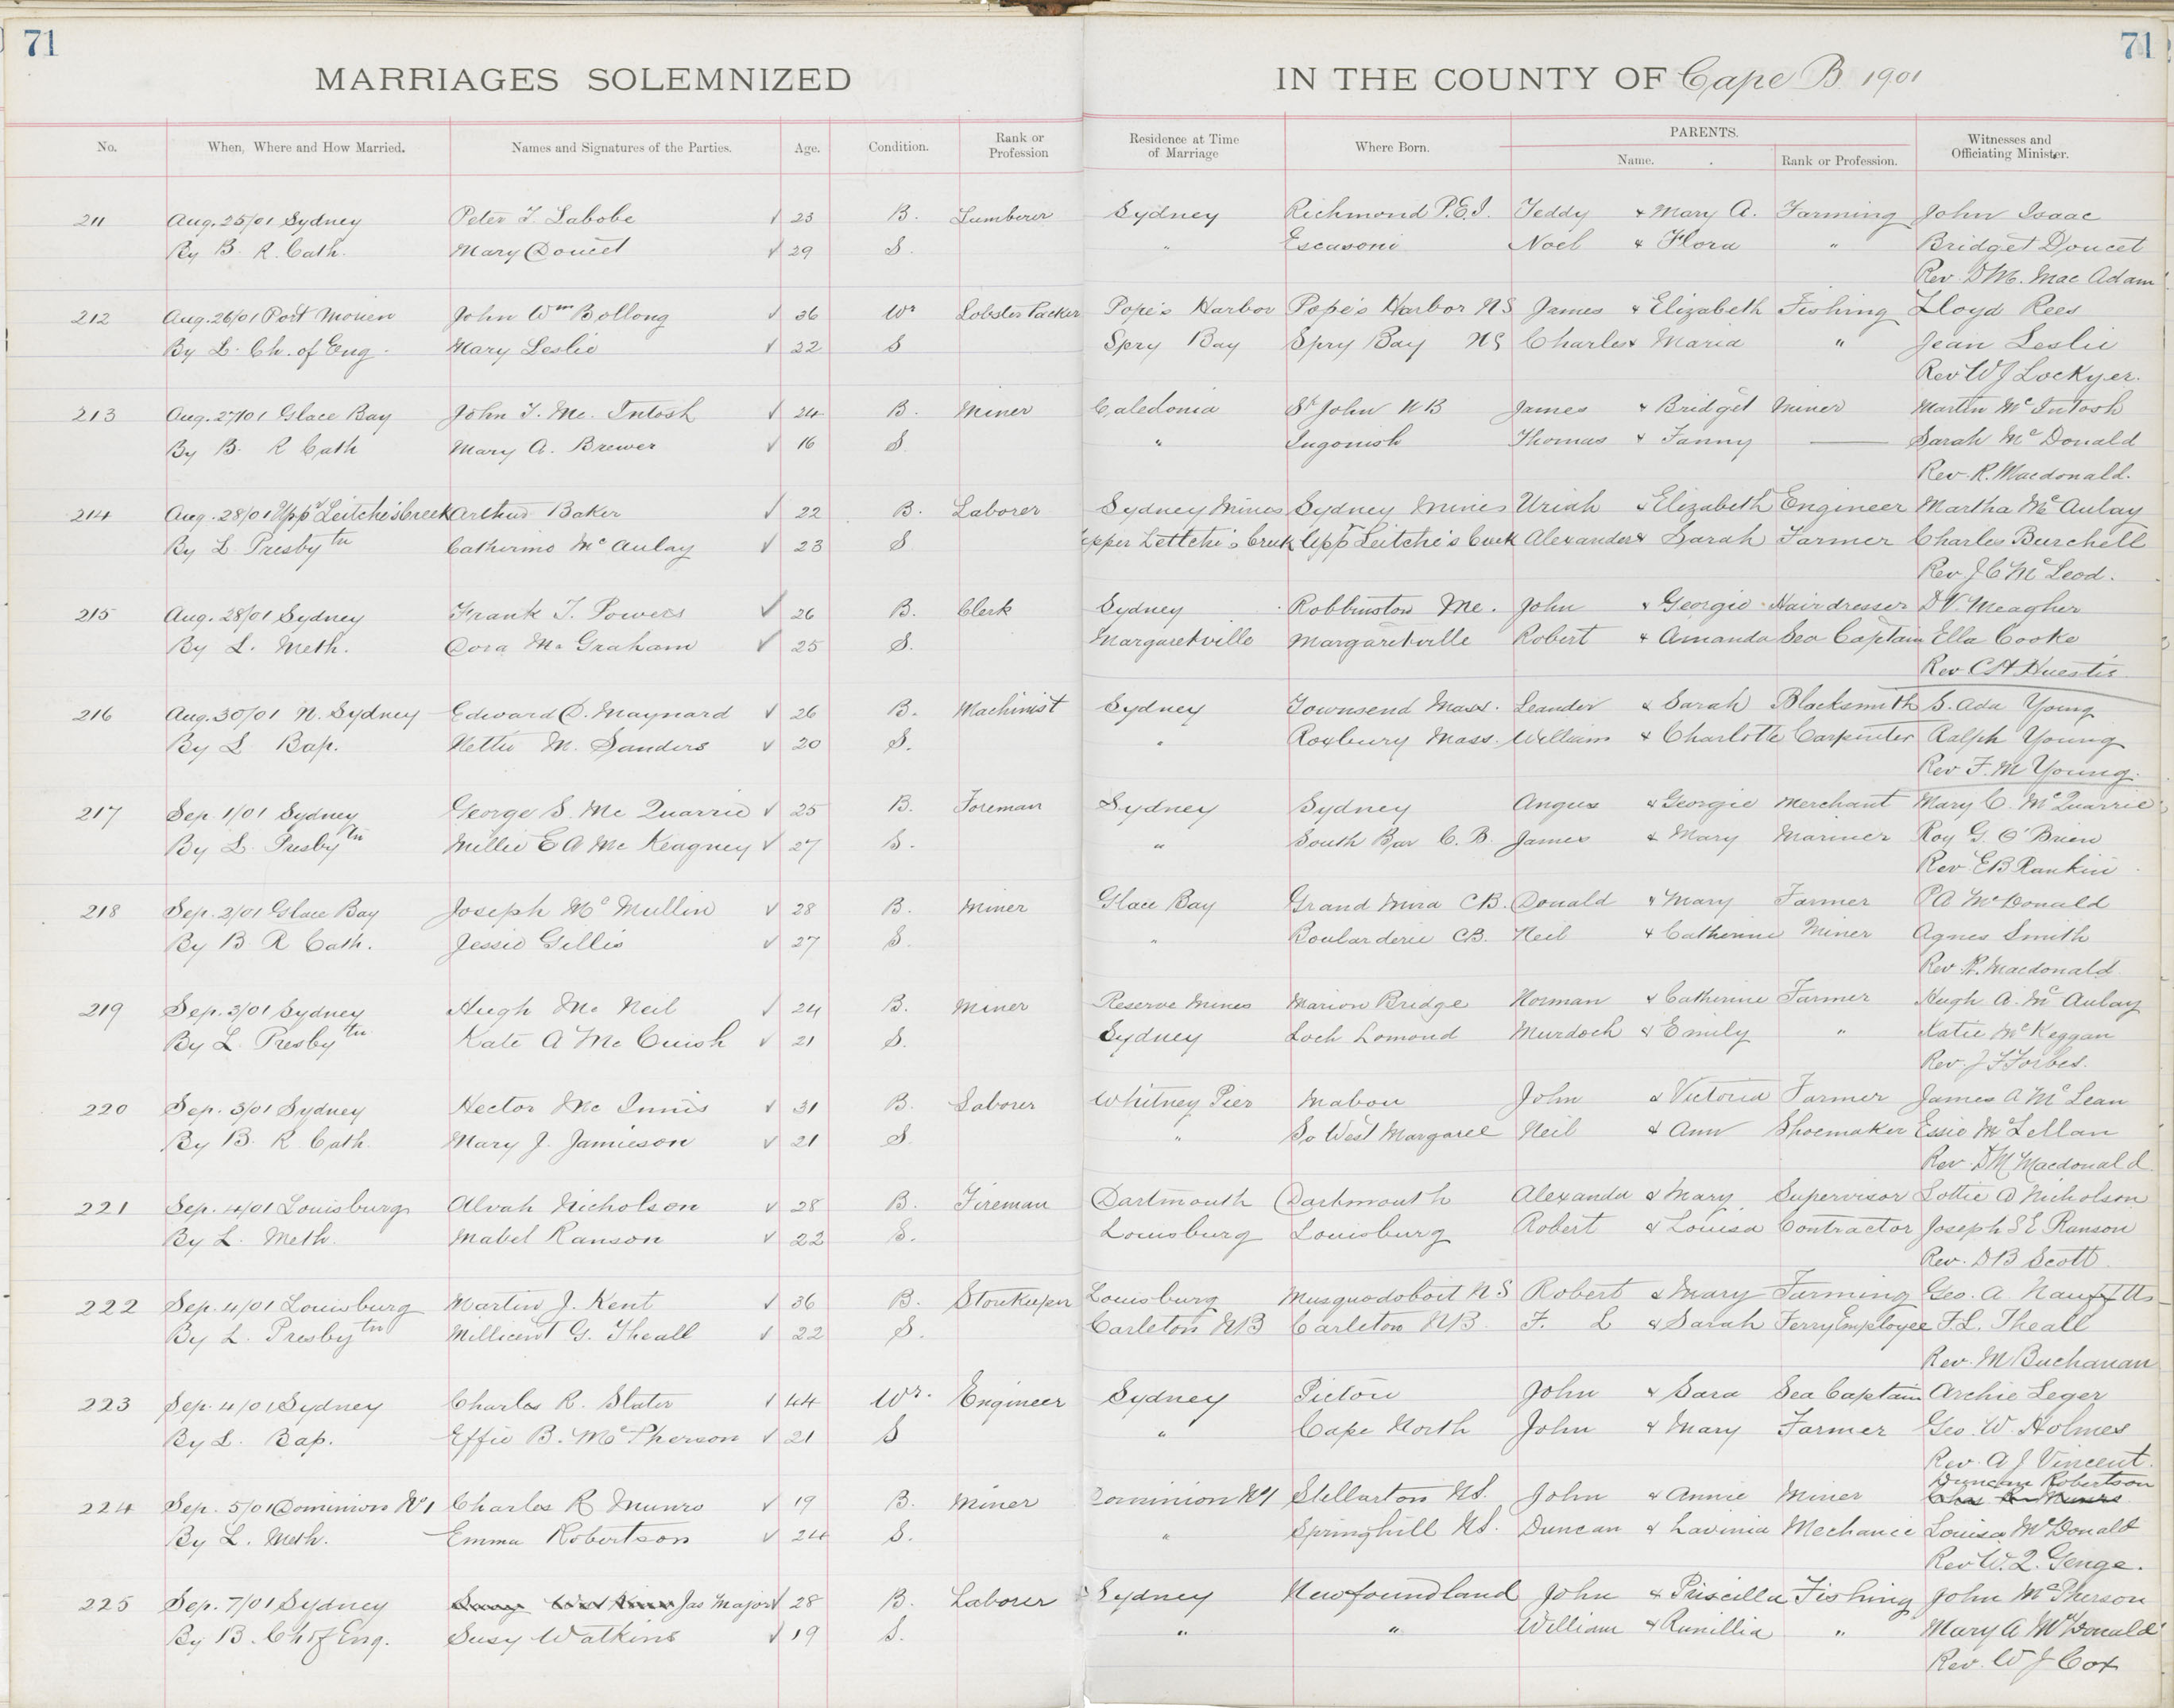 71 71
MARRIAGES SOLEMNIZED IN THE COUNTY OF Cape B 1901
No. When, Where and How Married. Names and Signatures of the Parties. Age. Condition. Rank or Profession Residence at Time of Marriage Where Born. PARENTS. Name. Rank or Profession. Witnesses and Officiating Minister.
211 Aug. 25/01 Sydney Peter T. Labobe √ 23 B. Lumberer Sydney Richmond P.E.I. Teddy & Mary A. Farming John Isaac
By B. R. Cath. Mary Doucet √ 29 S. " Escasoni Noel & Flora " Bridget Doucet
Rev. D M. Mac Adam
212 Aug. 26/01 Port Morien John Wm Bollong √ 36 Wr Lobster Packer Pope's Harbor Pope's Harbor NS James & Elizabeth Fishing Lloyd Rees
By L. Ch. of Eng. Mary Leslie √ 22 S Spry Bay Spry Bay NS Charles & Maria " Jean Leslie
Rev W J Lockyer.
213 Aug. 27/01 Glace Bay John T. Mc. Intosh √ 24 B. Miner Caledonia St John NB James & Bridget Miner Martin Mc Intosh
By B. R Cath Mary A. Brewer √ 16 S " Ingonish Thomas & Fanny — Sarah Mc Donald
Rev. R. Macdonald.
214 Aug. 28/01 Uppr Leitche's Creek Arthur Baker √ 22 B. Laborer Sydney Mines Sydney Mines Uriah & Elizabeth Engineer Martha Mc Aulay
By L. Presbytn Catherine Mc Aulay √ 23 S Upper Lettche's Creek Uppr Leitche's Creek Alexander & Sarah Farmer Charles Burchell
Rev J C Mc Leod.
215 Aug. 28/01 Sydney Frank T. Powers √ 26 B. Clerk Sydney Robbinston Me. John & Georgie Hairdresser D V. Meagher
By L. Meth. Cora M. Graham √ 25 S. Margaretville Margaretville Robert & Amanda Sea Captain Ella Cooke
Rev C H Huestis
216 Aug. 30/01 N. Sydney Edward D. Maynard √ 26 B. Machinist Sydney Townsend Mass. Leander & Sarah Blacksmith S. Ada Young
By L Bap. Nettie M. Sanders √ 20 S. " Roxbury Mass. William & Charlotte Carpenter Ralph Young
Rev F. M Young.
217 Sep. 1/01 Sydney George S. Mc Quarrie √ 25 B. Foreman Sydney Sydney Angus & Georgie Merchant Mary C. McQuarrie
By L. Presbytn Millie E A Mc Keagney √ 27 S. " South Bar C. B. James & Mary Mariner Roy G. O'Brien
Rev E B Rankin
218 Sep. 2/01 Glace Bay Joseph Mc Mullin √ 28 B. Miner Glace Bay Grand Mira CB. Donald & Mary Farmer P A McDonald
By B R Cath. Jessie Gillis √ 27 S. " Boularderie CB. Neil & Catherine Miner Agnes Smith
Rev R. Macdonald
219 Sep. 3/01 Sydney Hugh Mc Neil √ 24 B. Miner Reserve Mines Marion Bridge Norman & Catherine Farmer Hugh A. Mc Aulay
By L. Presbytn Kate A Mc Cuish √ 21 S. Sydney Loch Lomond Murdoch & Emily " Katie McKeggan
Rev. J F Forbes.
220 Sep. 3/01 Sydney Hector Mc Innis √ 31 B. Laborer Whitney Pier Mabou John & Victoria Farmer James A McLean
By B. R Cath. Mary J. Jamieson √ 21 S. " So West Margaree Neil & Ann Shoemaker Essie McLellan
Rev. D M Macdonald
221 Sep. 4/01 Louisburg Alvah Nicholson √ 28 B. Fireman Dartmouth Dartmouth Alexanda & Mary Supervisor Lottie D Nicholson
By L. Meth. Mabel Ranson √ 22 S. Louisburg Louisburg Robert & Louisa Contractor Joseph S E Ranson
Rev. D B Scott.
222 Sep. 4/01 Louisburg Martin J. Kent √ 36 B. Storekeeper Louisburg Musquodoboit NS Robert & Mary Farming Geo. A. Nauffts
By L. Presbytn Millicent G. Theall √ 22 S. Carleton NB Carleton NB F. L & Sarah Ferry Employee F. L. Theall
Rev. M Buchanan
223 Sep. 4/01 Sydney Charles R. Slater √ 44 Wr. Engineer Sydney Pictou John & Sara Sea Captain Archie Leger
By L. Bap. Effie B. McPherson √ 21 S " Cape North John & Mary Farmer Geo. W. Holmes
Rev. A J Vincent.
Duncan Robertson
224 Sep. 5/01 Dominion No1 Charles R Munro √ 19 B. Miner Dominion No1 Stellarton NS. John & Annie Miner
By L. Meth. Emma Robertson √ 24 S. " Springhill NS. Duncan & Lavinia Mechanic Louisa McDonald
Rev W. Q. Genge.
225 Sep. 7/01 Sydney Jas Major √ 28 B. Laborer Sydney Newfoundland John & Priscilla Fishing John McPherson
By B. Ch of Eng. Susy Watkins √ 19 S. " " William & Runillia " Mary A McDonald
Rev. W J Cox